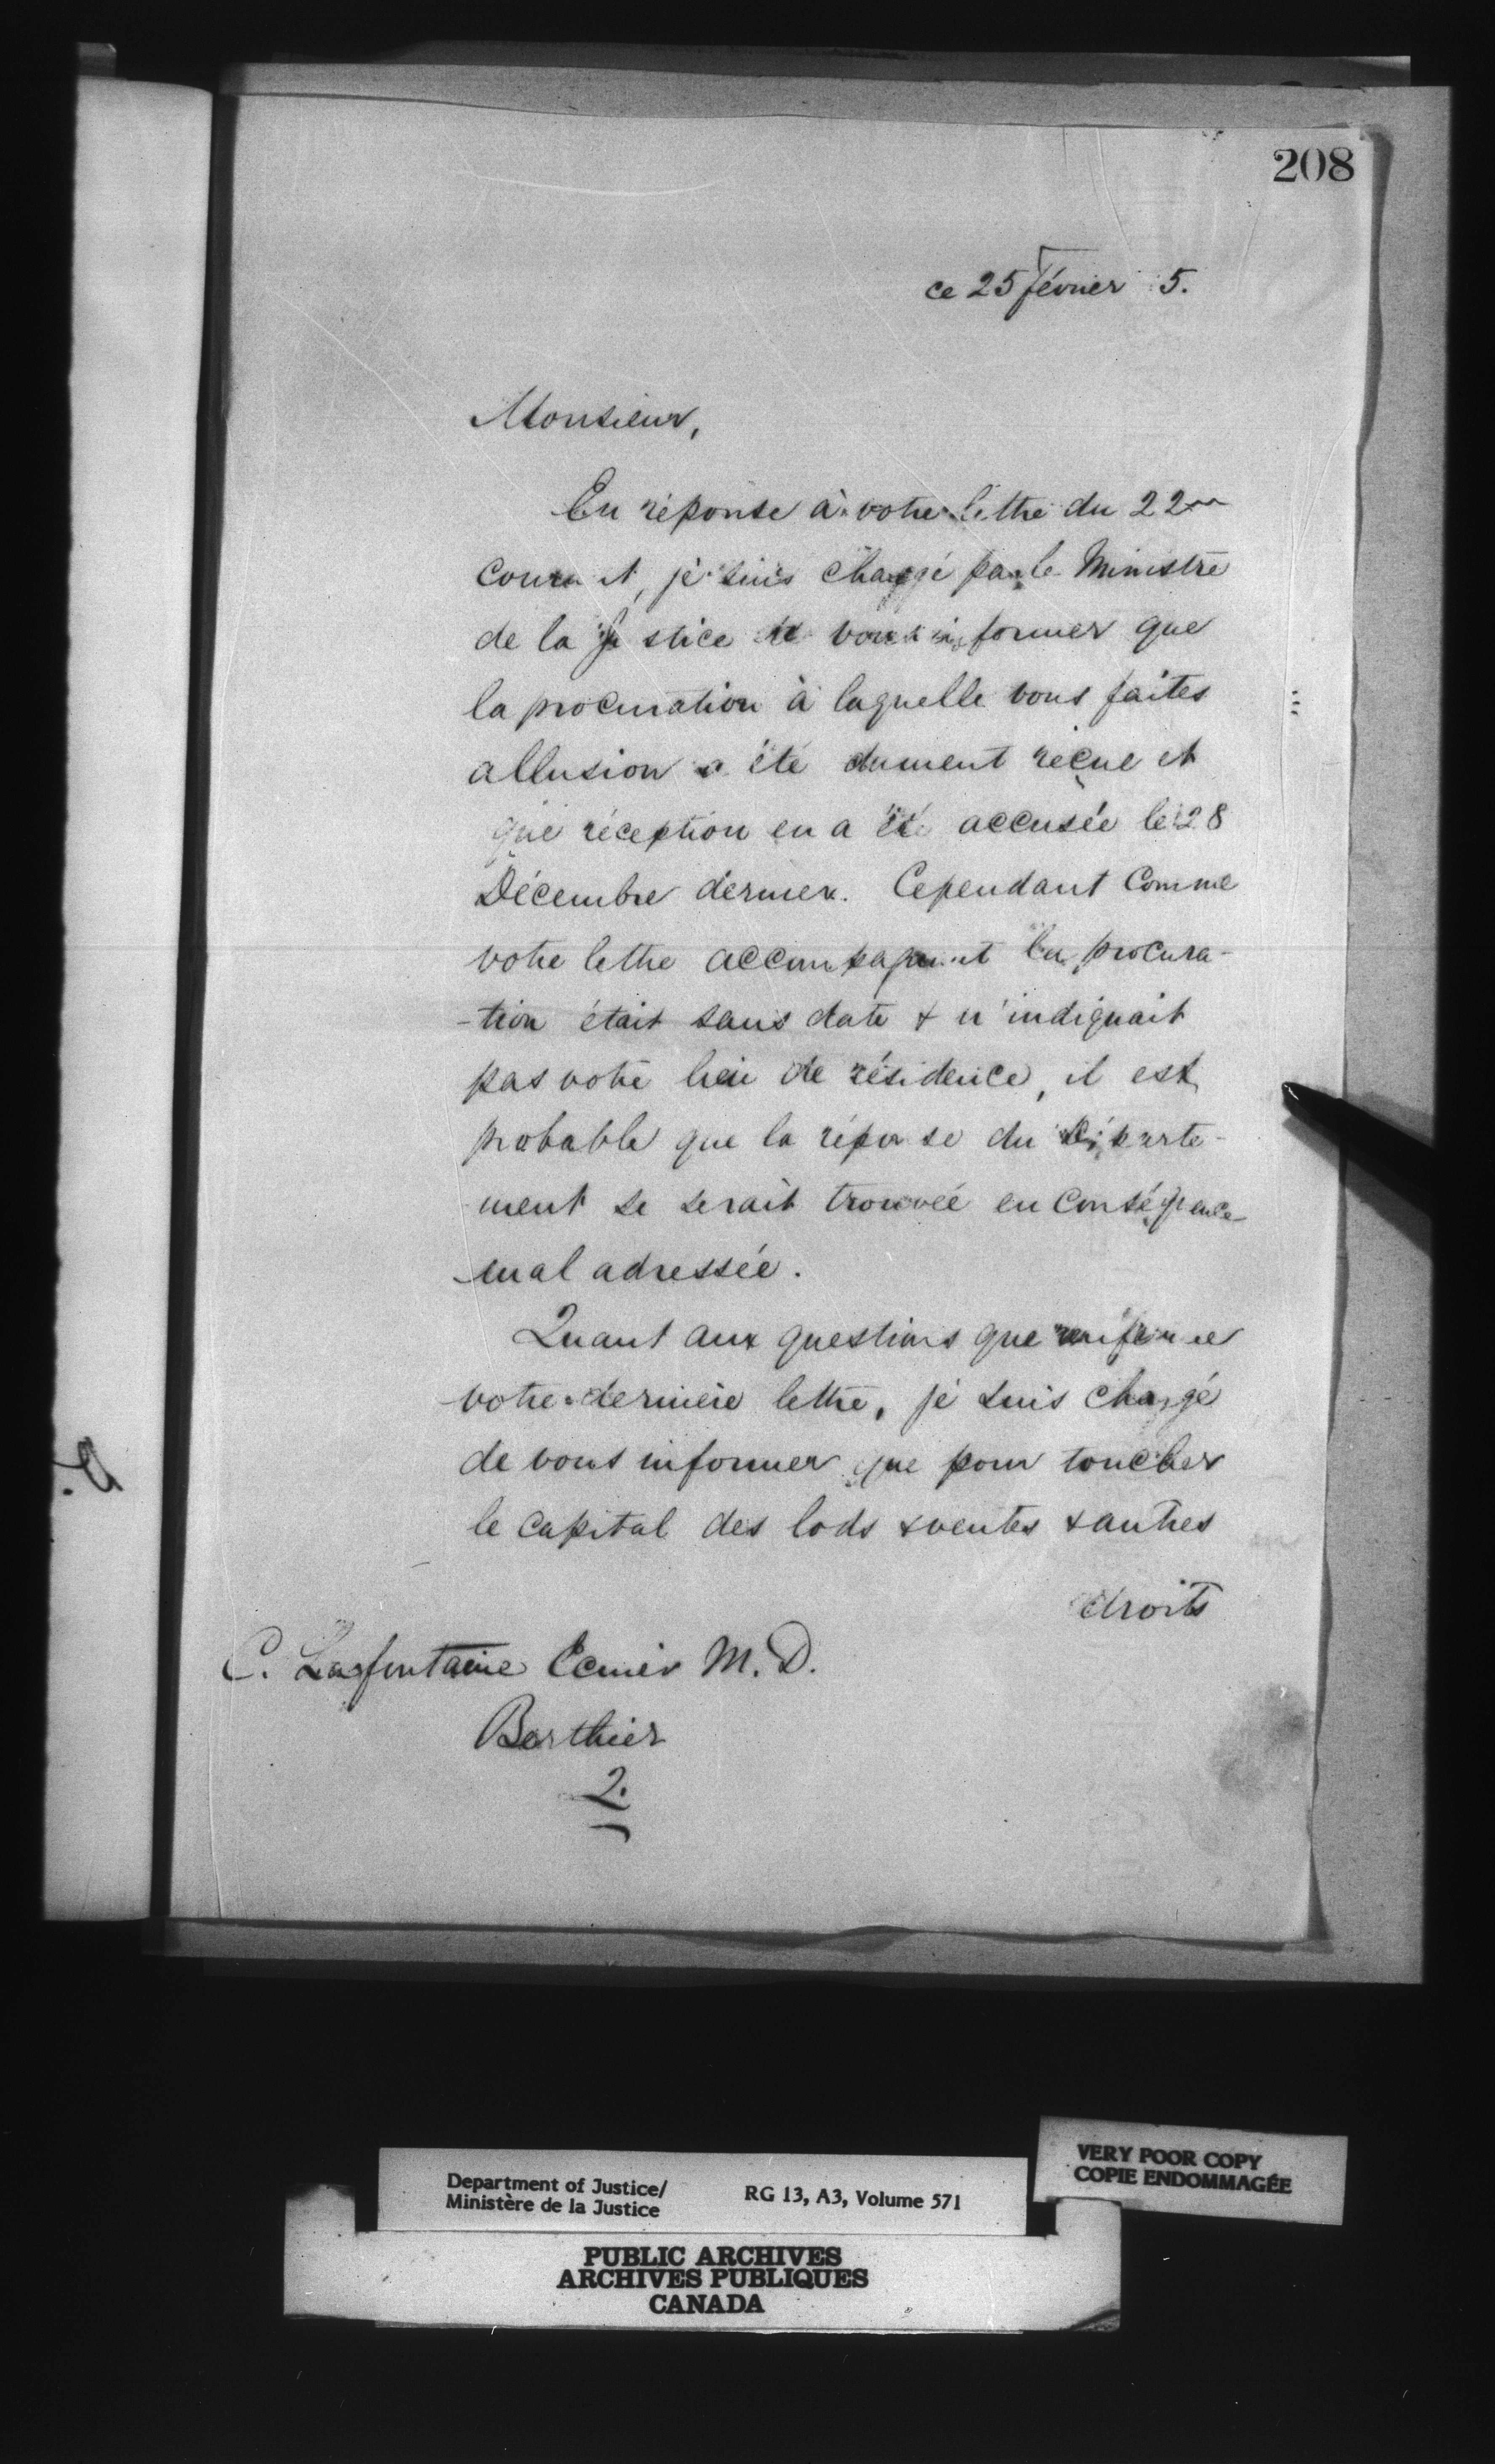 208
ce 25 février 5.
Monsieur,
En réponse à votre lettre du 22
courant, je suis chargé par le Ministre
de la Justice de vous informer que
la procuration à laquelle vous faites
allusion a été dument reçue et
que réception en a été accusée le 28
Décembre dernier. Cependant comme
votre lettre accompagnant la procura-
-tion était sans date & n'indiquait
pas votre lieu de résidence, il est
probable que la réponse du Départe-
-ment se serait trouvée en conséquence
mal adressée.
Quant aux questions que renferme
votre dernière lettre, je suis chargé
de vous informer que pour toucher
le capital des lods & ventes & autres
droits
C. Lafontaine Ecuier M.D.
Berthier
2.
Department of Justice/
Ministère de la Justice
RG 13, A3, Volume 571
VERY POOR COPY
COPIE ENDOMMAGÉE
PUBLIC ARCHIVES
ARCHIVES PUBLIQUES
CANADA